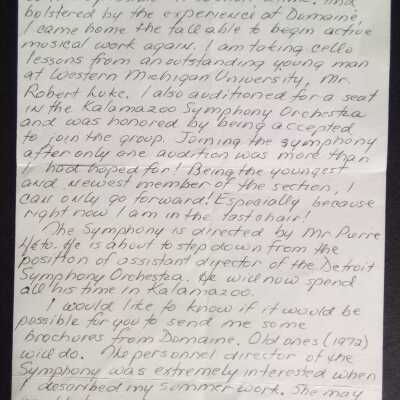 bolstered by the experience at Domaine,
I came home the fall able to begin active
musical work again. I am taking cello
lessons from an outstanding young man
at Western Michigan University, Mr.
Robert Luke. I also auditioned for a seat
in the Kalamazoo Symphony Orchestra
and was honored by being accepted
to join the group. Joining the symphony
after only one audition was more than
I had hoped for! Being the youngest
and newest member of the section, I
can only go forward! Especially because
right now I am in the last chair!
The Symphony is directed by Mr Pierre
Héto. He is about to step down from the
position of assistant director of the Detroit
Symphony Orchestra. He will now spend
all his time in Kalamazoo.
I would like to know if it would be
possible for you to send me some
brochures from Domaine. Old ones (1972)
will do. The personnel director of the
Symphony was extremely interested when
I described my summer work. She may